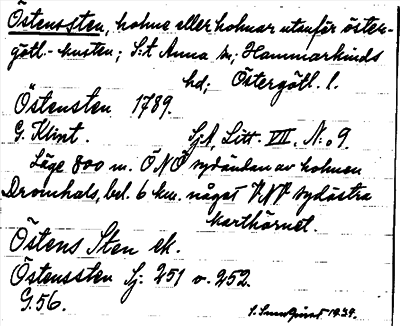 Östenssten, holme eller holmar utanför öster-
götl.-kusten; S:t Anna sn; Hammarkinds
hd; Östergötl. l.
Östensten 1789.
G. Klint. Sj.A. Litt. VII. N:o 9.
Läge 800 m. ÖNÖ sydändan av holmen
Dromhals, bel. 6 km. något VNV sydöstra
karthörnet.
Östens Sten ek.
Östenssten Sj: 251 o. 252.
G. 56.
1939.